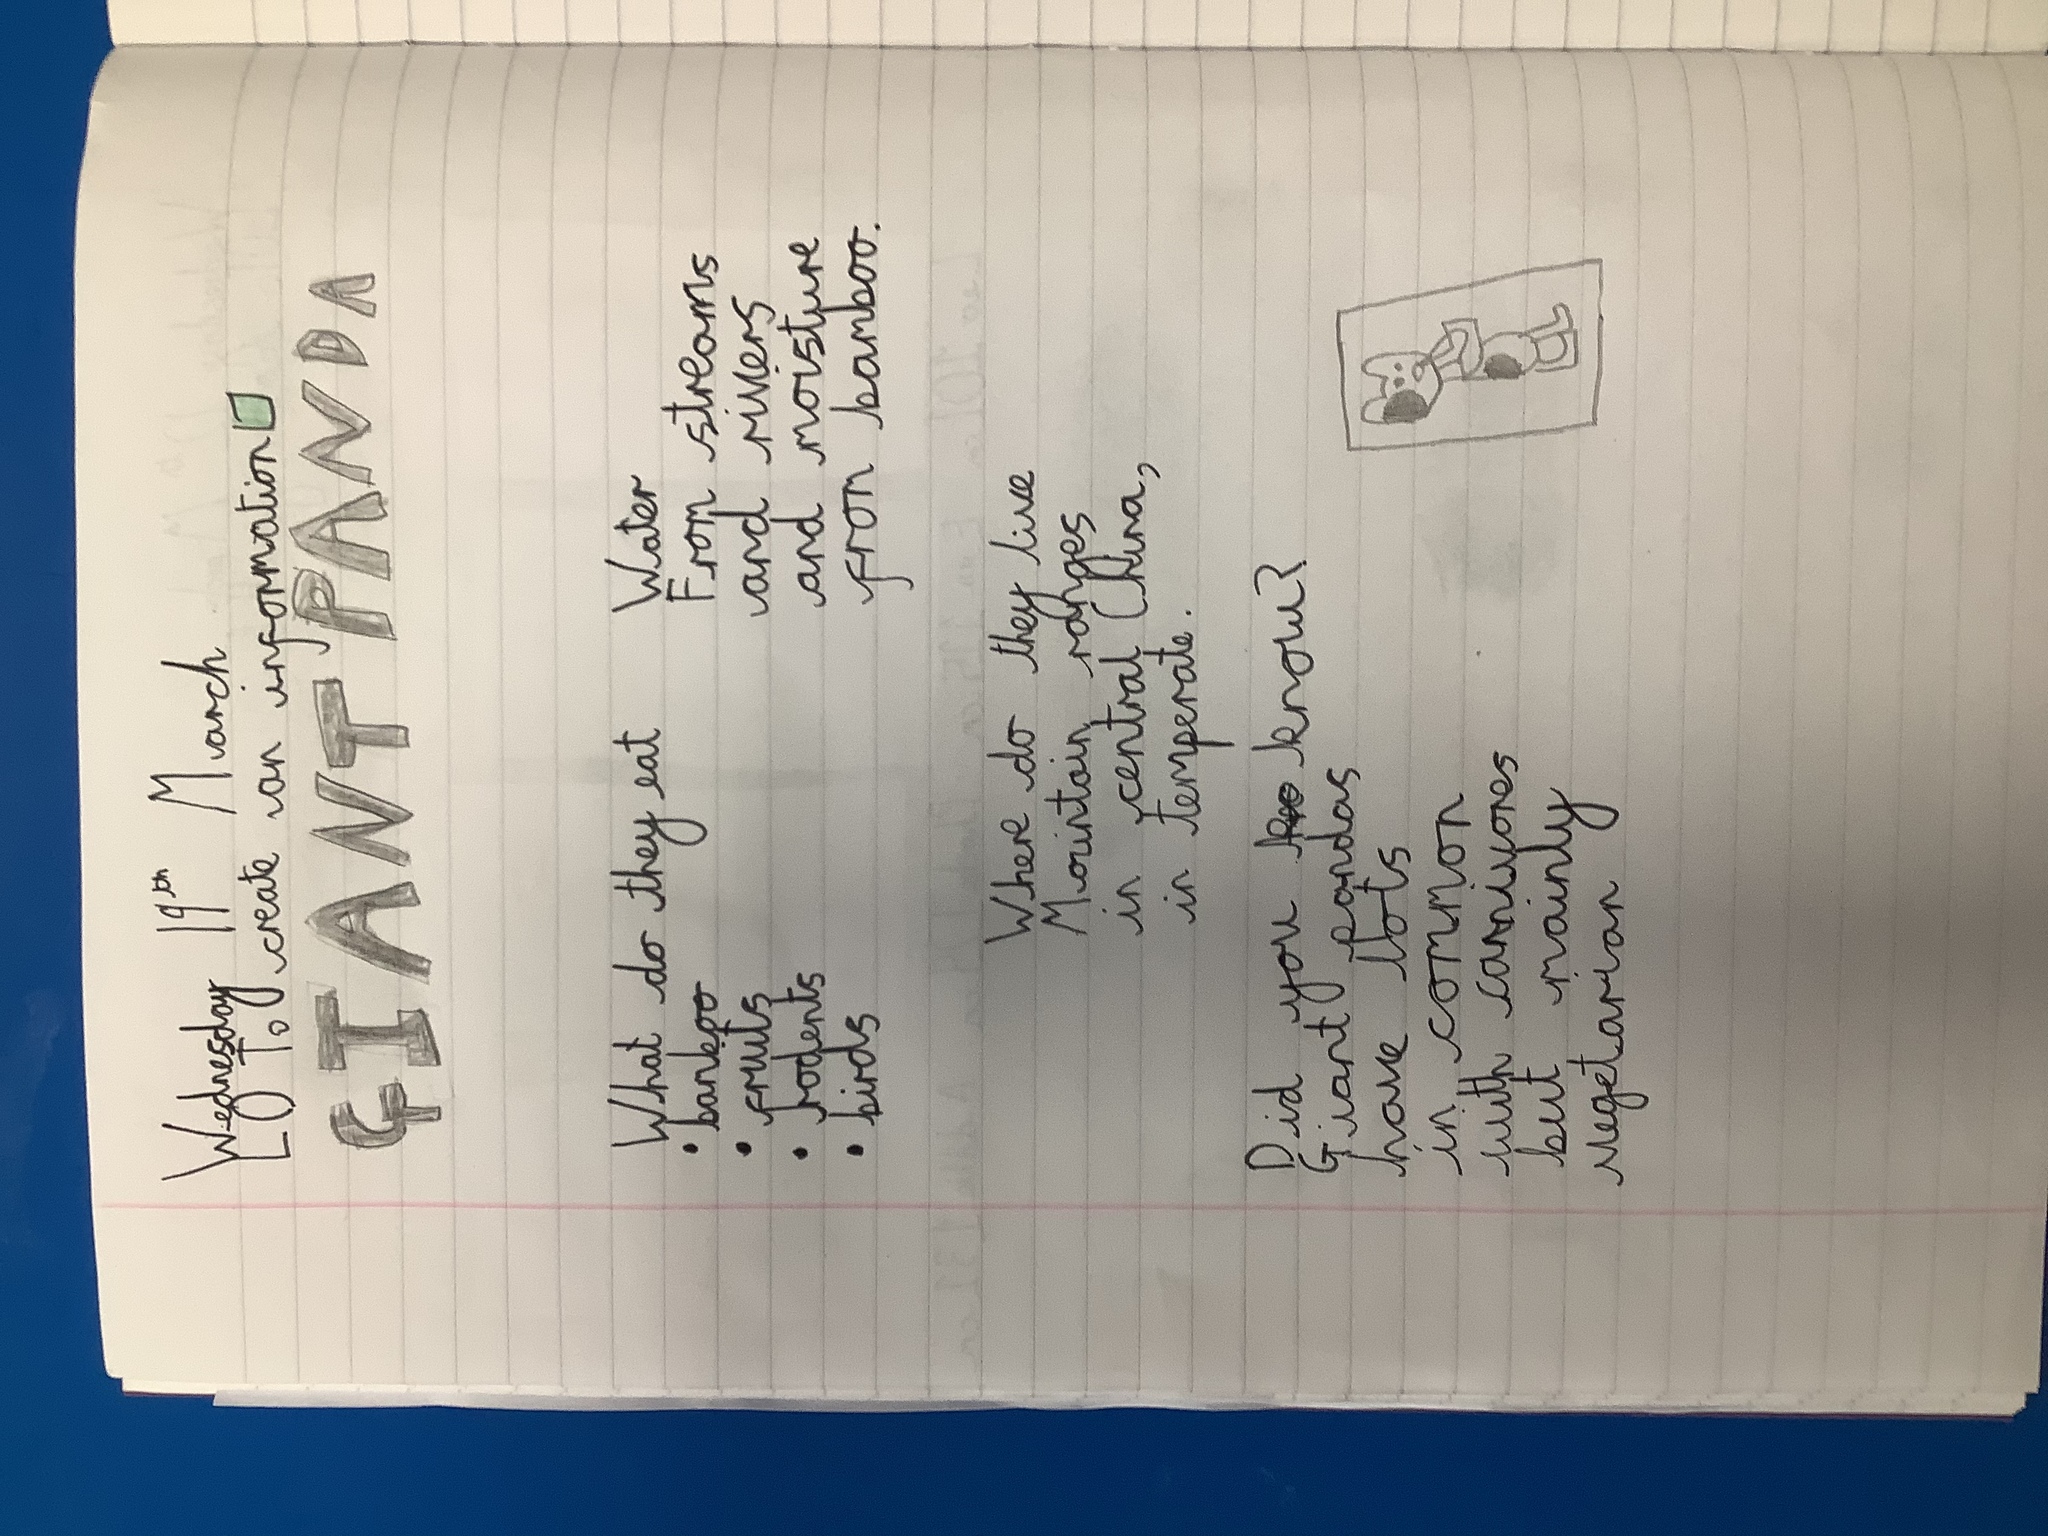 Wednesday 19th March
LO To create an information
GIANT PANDA
What do they eat
• bamboo
• fruits
• rodents
• birds
Water
From streams
and rivers
and moisture
from bamboo.
Where do they live
Mountain ranges
in central China,
in temperate.
Did you know?
Giant pandas
have lots
in common
with carnivores
but mainly
vegetarian